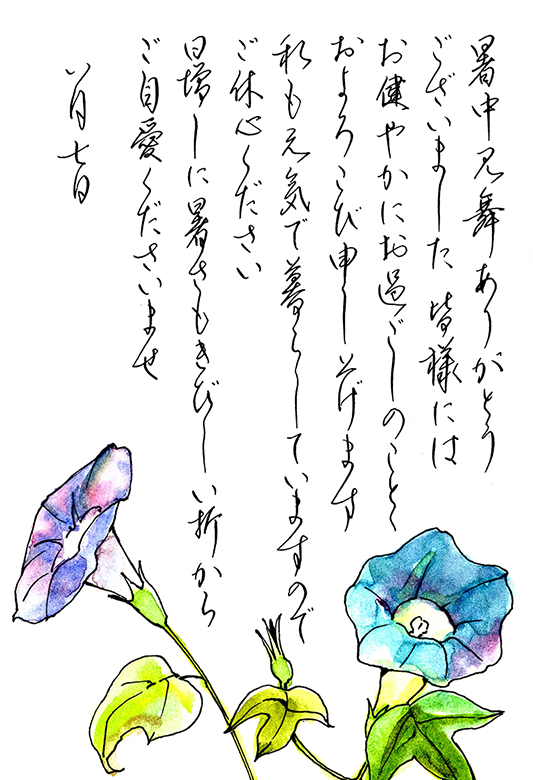 暑中見舞ありがとう
ございました 皆様には
お健やかにお過ごしのことゝ
およろこび申しあげます
私も元気で暮らしていますので
ご休心ください
日増しに暑さもきびしい折から
ご自愛くださいませ
八月七日